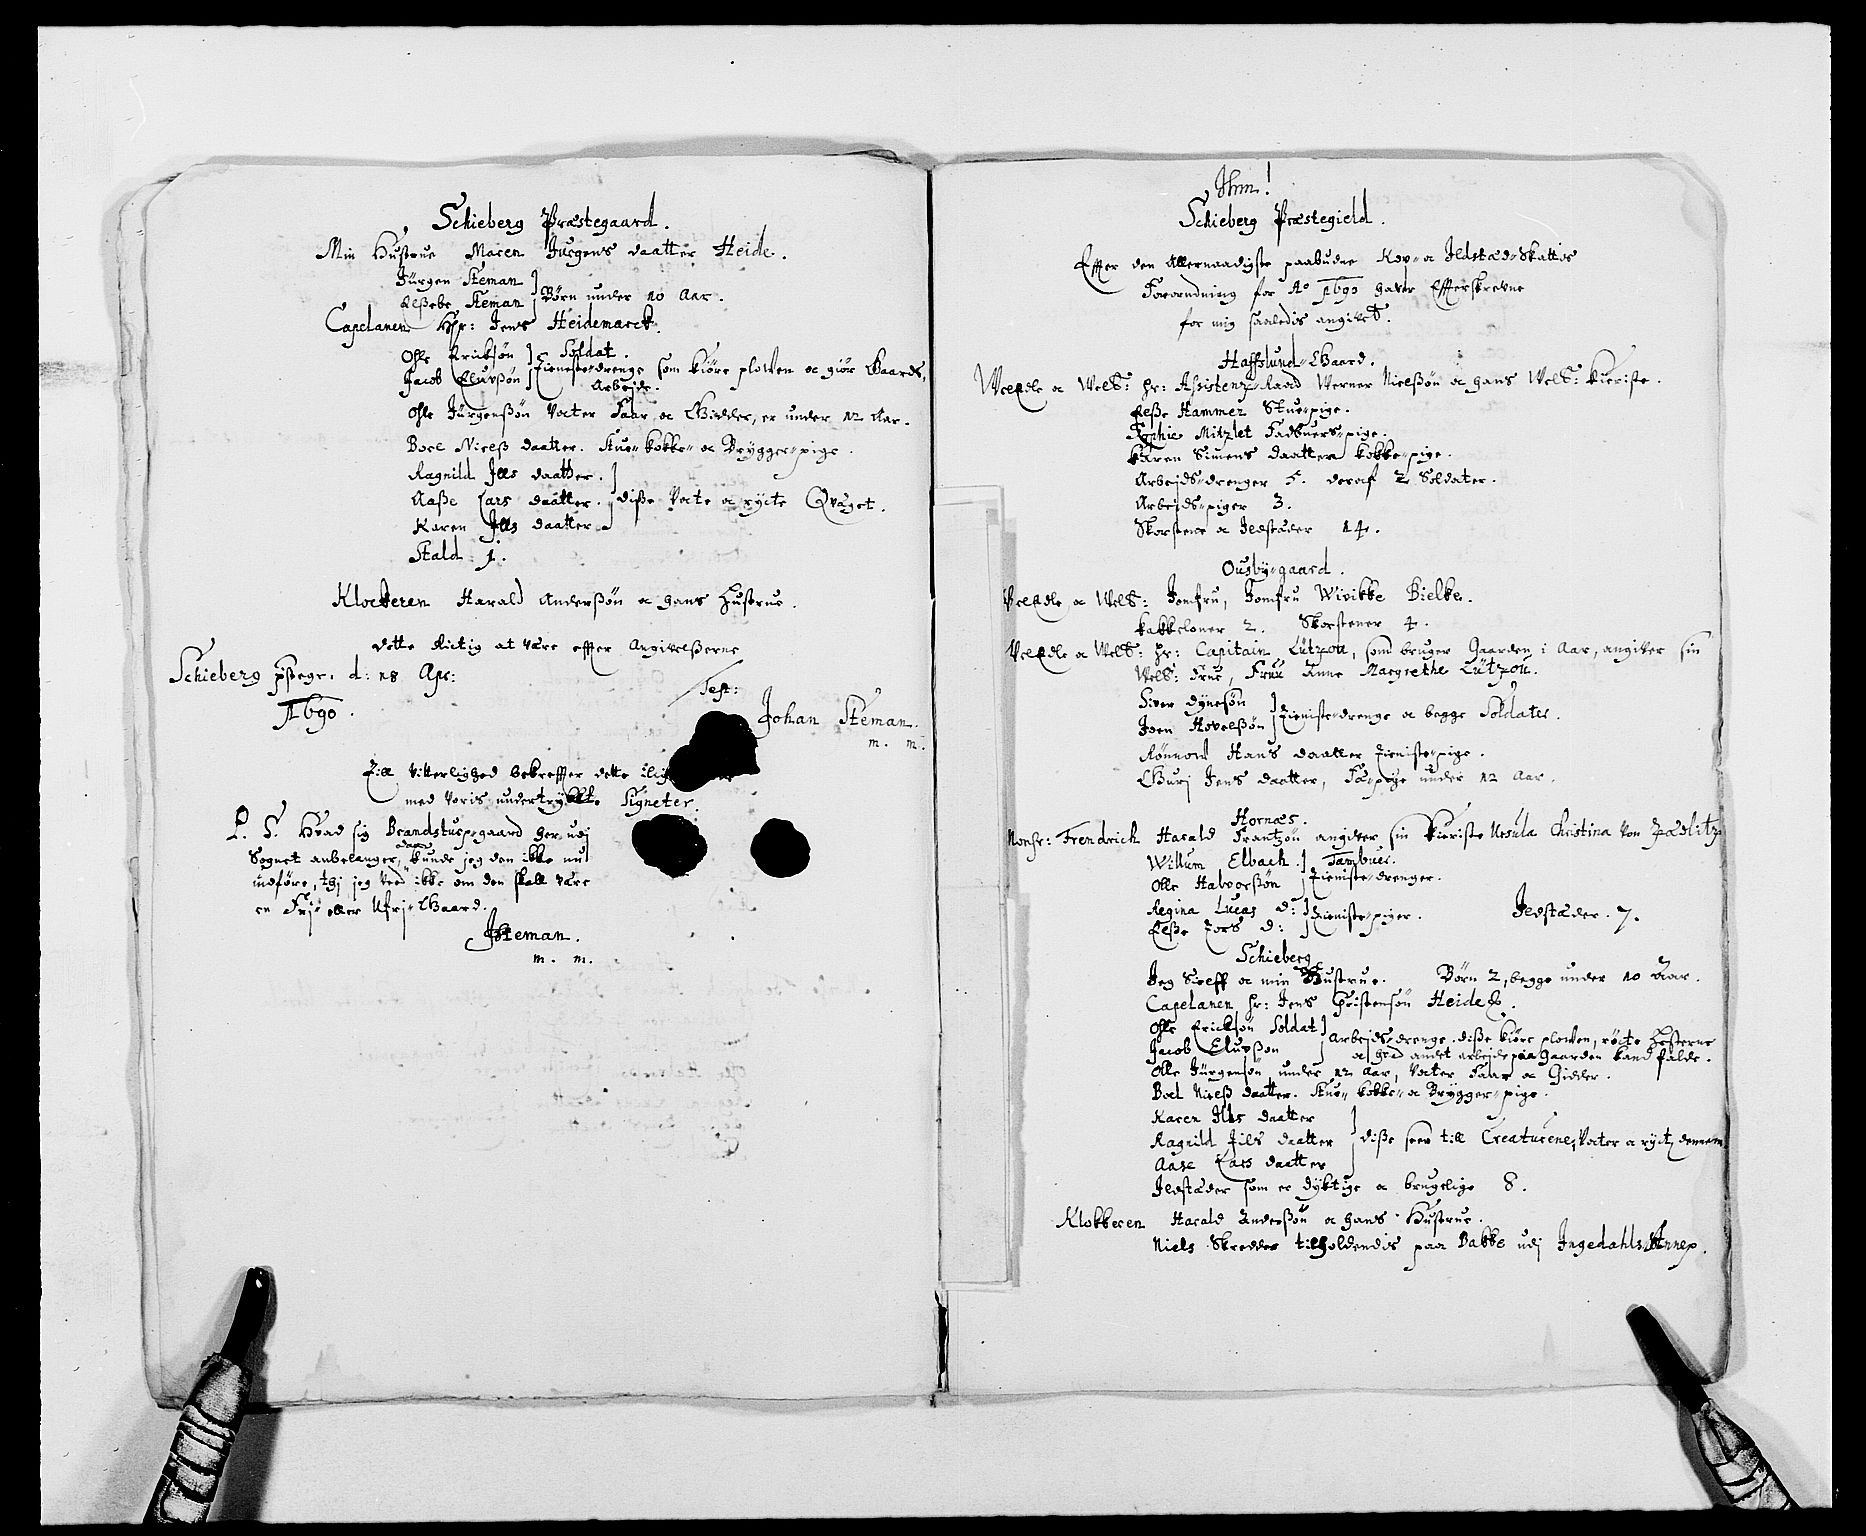 Schieberg Præstegaard.
Min Hustrue Maren Jurgens daatter Heide.
Jürgen Steman
Elßebe Steman } Børn under 10 Aar.
Capelanen Hr: Jens Heidemarck.
Ohle Erickßøn } Soldat.
Jacob Eluvßøn } Tieniste-drenge som kiøre plowen oc giør Gaards,
Arbejde.
Ohle Jürgenßøn Vocter Faar oc Gieder, er under 12 Aar.
Boel Nielß daatter. Stue- kokke- oc Brygger-pige.
Ragnild Jlls daatter.
Aaße Lars daatter. } diße Vocte oc rycte Qvæget.
Karen Jlls daatter
Stald 1.
Klockeren Harald Anderßøn oc hans Hustrue.
dette Rictig at være effter Angivelßerne
Schieberg pstegr. d: 28 Apr:
1690.
Test:
Johan Steman.
m. m.
Till Vitterlighed bekreffter dette
med Voris undertrykte Signeter.
P. S. Hvad sig Brandstup-gaard her udj
Sognet anbelanger, da kunde jeg den ikke nu
indføre, thj jeg Veed ikke om den skall være
en Frj- eller Ufrj-Gaard.
JSteman.
m. m.
Schieberg Præstegield.
Effter den Allernaadigste paabudne Kop- oc Jldstæd-Skattis
Forordning for Ao 1690 haver Effterskrevne
for mig saaledis angivet.
Haffslund-Gaard.
Velædle oc Velb: Hr: Assistenz-Raad Werner Nielßøn oc hans Velb: Kieriste.
Elße Hammer Stue-pige.
Sophie Mitzlet Fadbuers-pige.
Karen Simens daatter kokke-pige.
Arbejds-drenger 5. deraf 2 Soldater.
Arbejds-piger 3.
Skorstene oc Jldstæder 14.
Ousby-gaard.
Velædle oc Velb: Jomfru, Jomfru Wivikke Bielke.
kakkeloner 2. Skorstener 4.
Velædle oc Velb: Hr: Capitain Lützou, som bruger Gaarden i Aar, angiver sin
Velb: Frue, Frue Anne Margrethe Lützou.
Siver Dynesøn
Joen Hovelßøn } Tieniste-drenge oc begge Soldater.
Rønnow Hans daatter Tieniste-pige.
Gurj Jens daatter, Fæ-pige under 12 Aar.
Hornæs.
Monsr: Frendrich Harald Frantzøn angiver sin Kieriste Ursula Christina Von Zædlitz
Willum Elbach. } Tambuer.
Olle Halvorßøn } Tieniste-drenger.
Regina Lucas d:
Elße Tors d: } Tieniste-piger. Jldstæder. 7.
Schieberg
Jeg Sielff oc min Hustrue. Børn 2, begge under 10 Aar.
Capelanen Hr: Jens Christensøn Heide
Ohle Erickßøn Soldat
Jacob Elupßøn } Arbejds-drenge. diße kiøre plowen, røcte Hesterne
oc hvad andet arbejde paa Gaarden kand falde.
Olle Jürgensøn under 12 Aar, Vocter Faar oc Gieder.
Boel Nielß daatter. Stue- kokke- oc Brygger-pige.
Karen Jlls daatter
Ragnild Jils daatter } diße seer till Creaturene, Vocter oc ryct, dennem
Aase Lars daatter
Jldstæder som er dyktige oc brugelige 8.
Klokkeren Harald Anderßøn oc hans Hustrue.
Niels Skredder tilholdendis paa Bakke udj Ingedahls Annex.